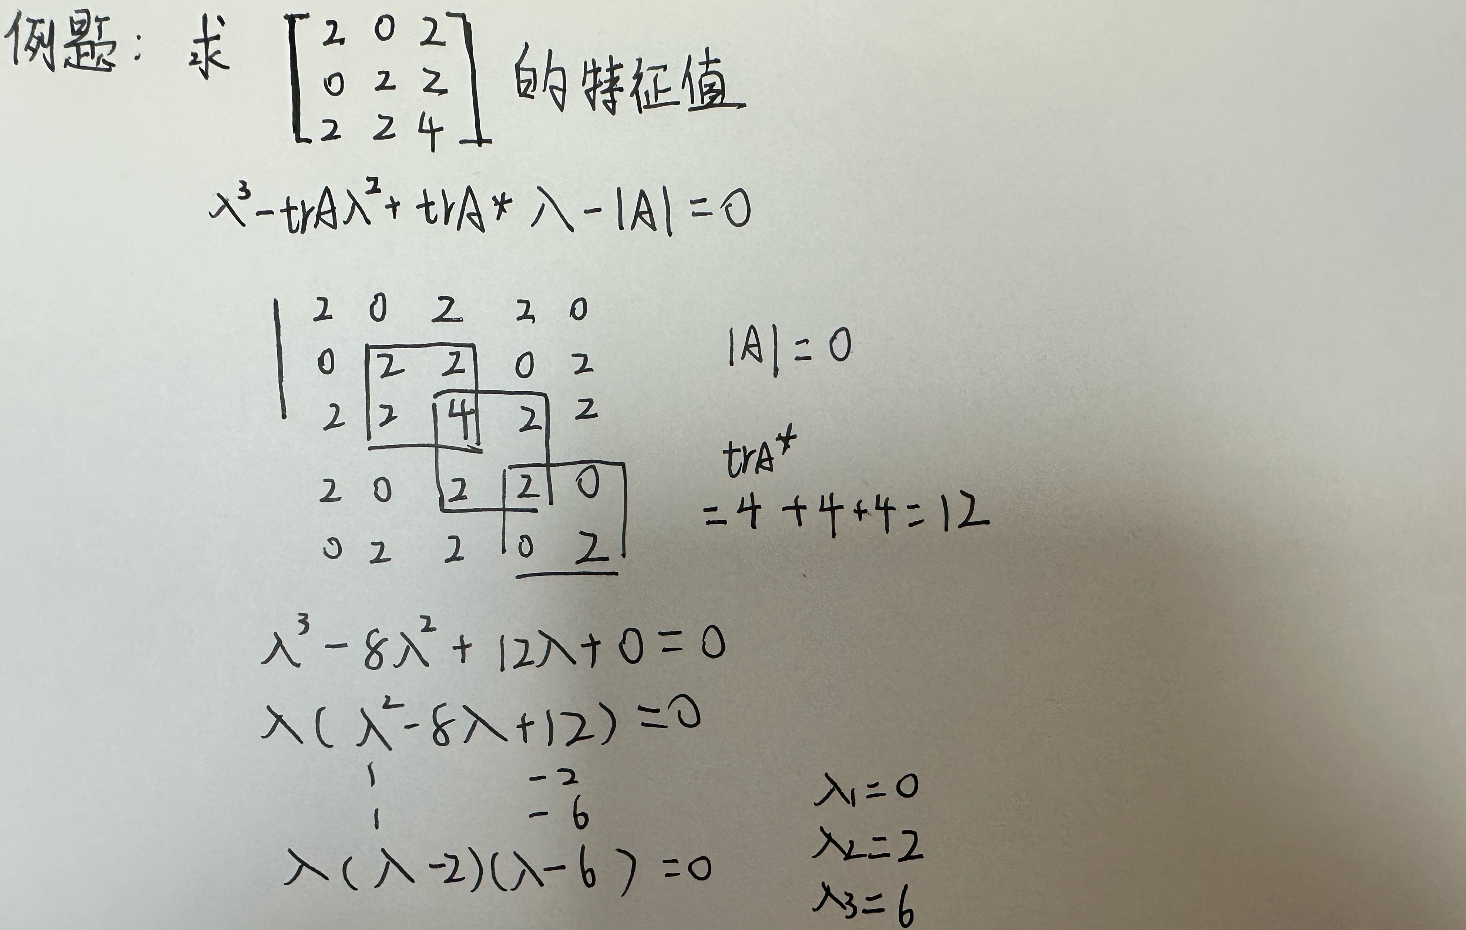 例题: 求 [2 0 2
0 2 2
2 2 4] 的特征值
λ³-trAλ²+trA* λ-|A|=0
2 0 2 2 0
0 2 2 0 2
2 2 4 2 2
2 0 2 2 0
0 2 2 0 2
|A|=0
trA*
=4+4+4=12
λ³-8λ²+12λ+0=0
λ(λ²-8λ+12)=0
1 -2
1 -6
λ(λ-2)(λ-6)=0
λ1=0
λ2=2
λ3=6